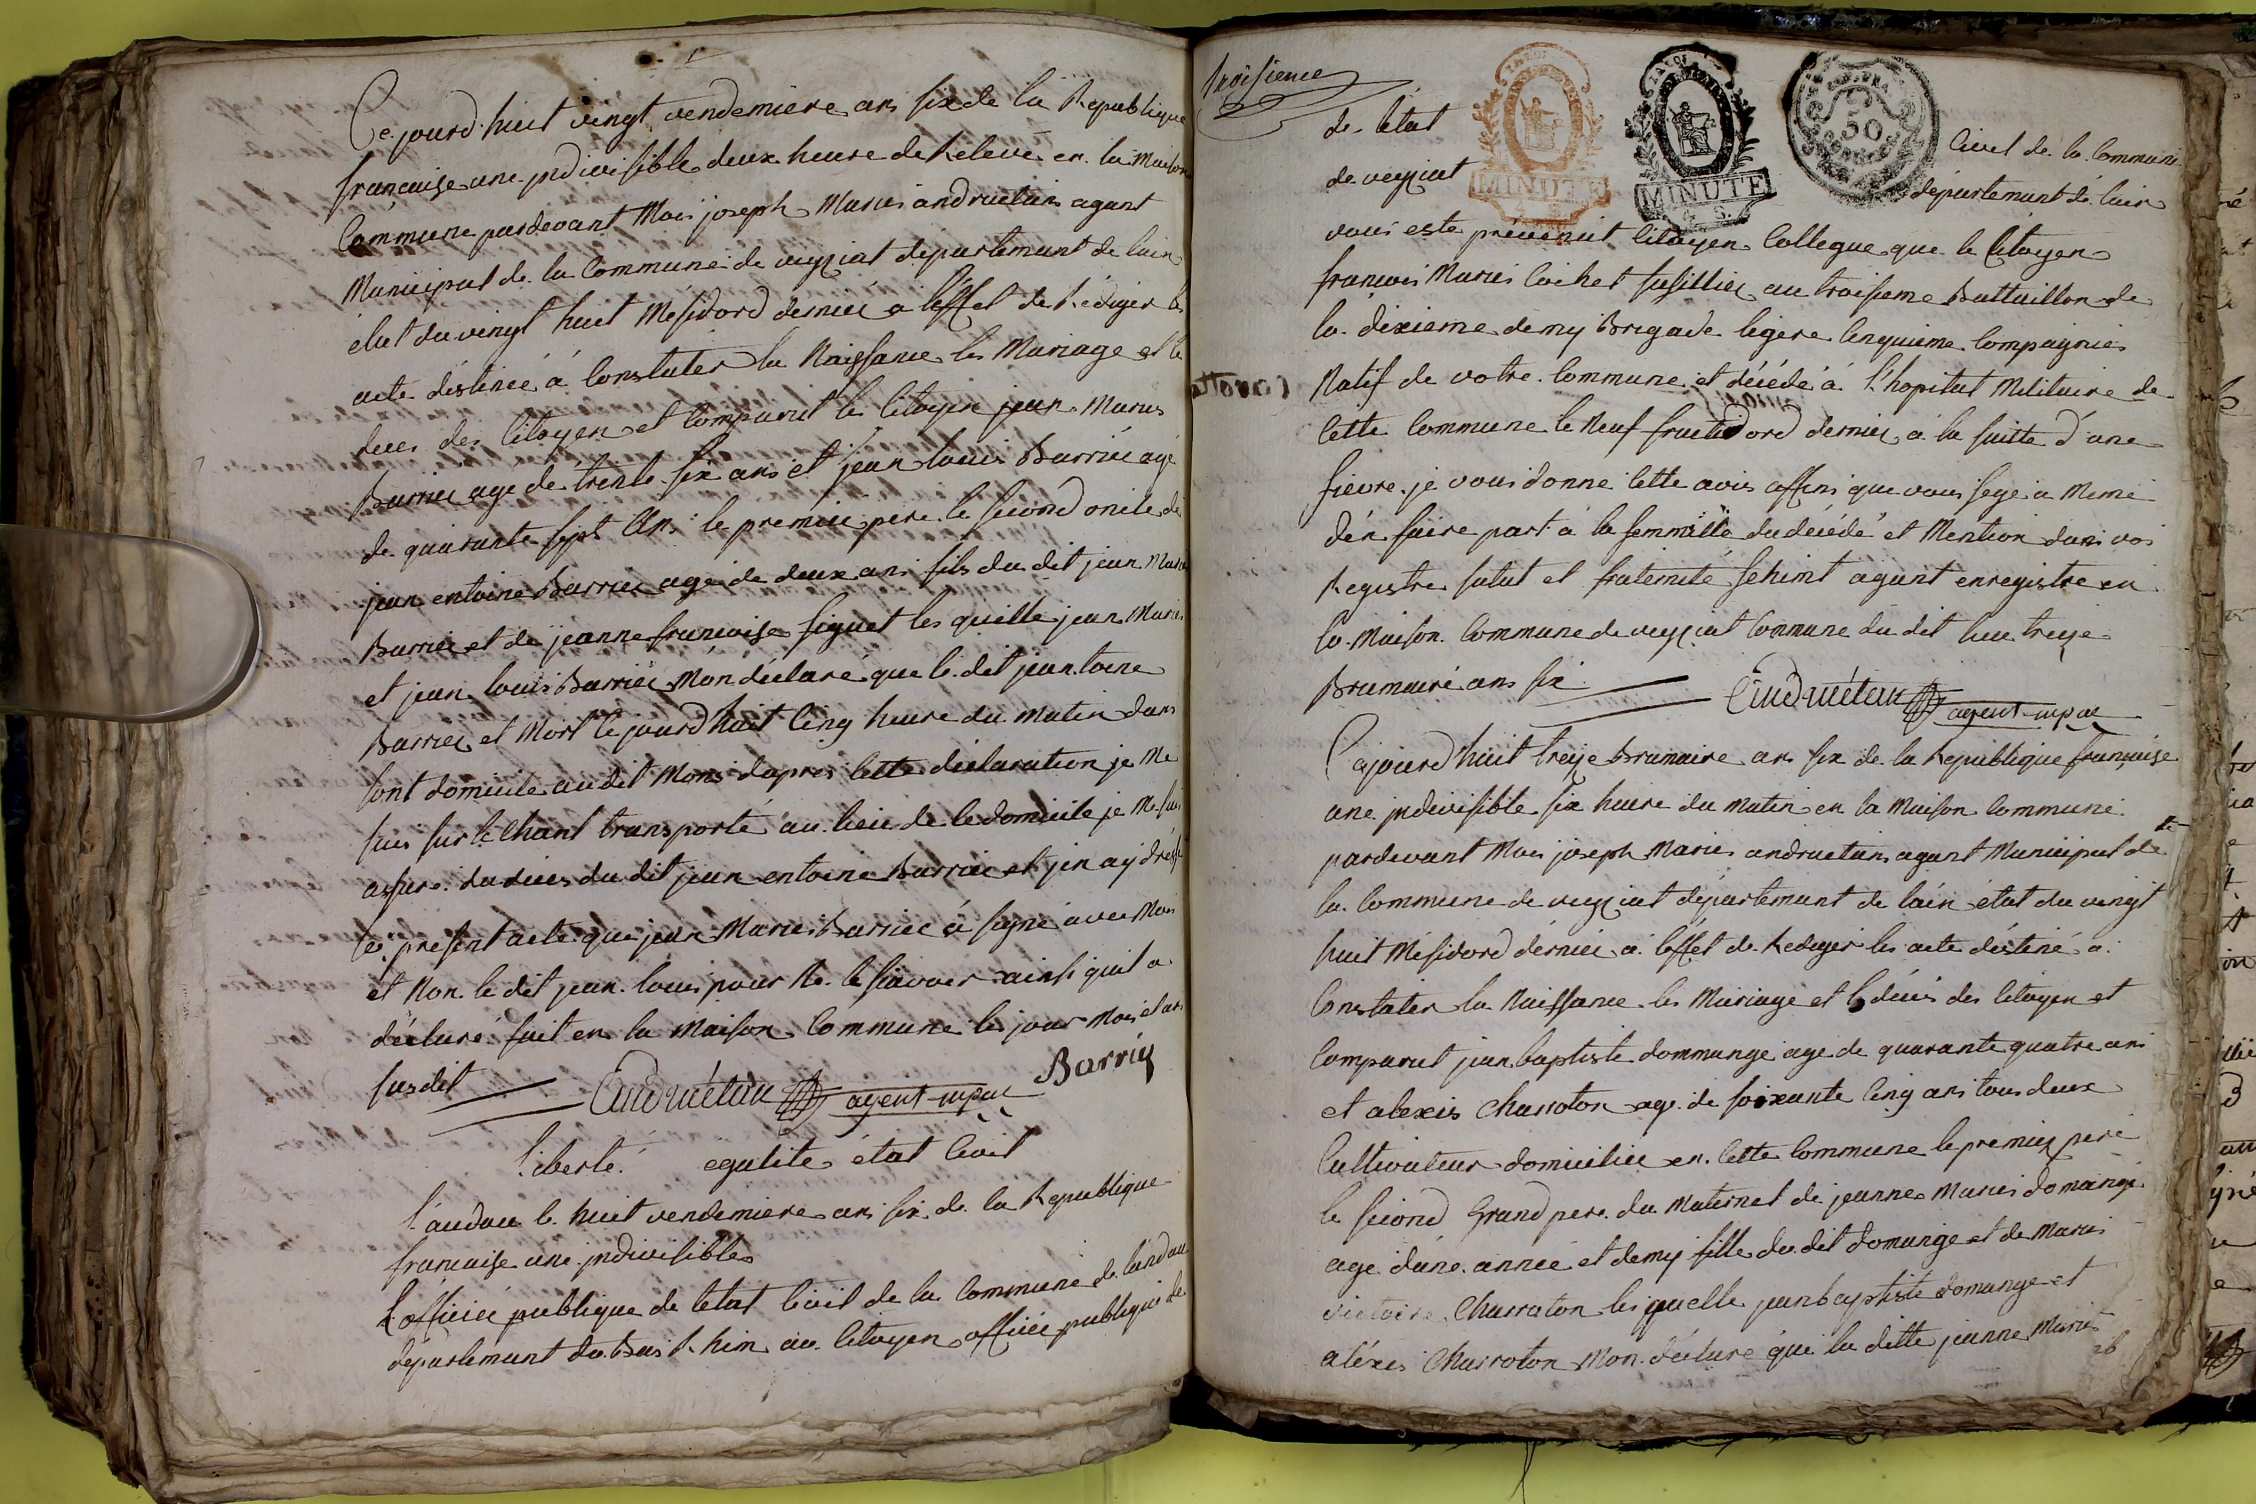 Ce jourd'huit vingt vendemiere ans six de la Republique
française une jndivisible deux heure de Relevé en la Maison
Commune pardevant Moi joseph Maries andruetans agant
Municipal de la Commune de veyziat departemant de lain
élut du vingt huit Mésidord dernier a l'effet de Rediger les
acte déstinée á Constater la Naissance les Mariage et le
deces des Citoyen et Comparut les Citoyen jean Maries
Barrier agé de trente six ans et jean louis Barrier agé
de quarante sept ans le premier pere le second oncle de
jean entoine Barrier agé de deux ans fils du dit jean Maries
Barrier et de jeanne francoise Siguet les quelle jean Maries
et jean louis Barrier Mon déclaré que le dit jeantoine
Barrier et Mort le jourd'huit Cinq heure du Matin dans
sont domicile audit Mons dapres Cette déclaration je Me
suis sur le Chant transporté au lieu de le domicile je Me suis
assure du deces du dit jean entoine Barrier et jen aÿ dressé
le présent acte que jean Maries Barrier á signé avec Moi
et Non le dit jean louis pour Ne le scavoir ainsi quil a
déclaré fait en la Maison Commune les jour Mois et ans
susdit Andruétan agent mpal Barrier
Liberté egalité état Civil
Landau le huit vendemiere ans six de la Republique
francaise une jndivisible
L'officier publique de létat Civil de la Commune de landau
département du Bas Rhin au Citoyen officier publique de
troisieme
de létat Civil de la Commune
de veyziat département de lain
MINUTE
4 S.
MINUTE
4 S.
50
vous este prévenut Citoyen Collegue que le Citoyen
francois Maries Cochet fusillier au troisieme Battaillon de
la dixieme demy Brigade legere Cinquieme Compagnies
Natif de votre Commune et décédé á l'hopital Militaire de
Cette Commune le Neuf fructidord dernier a la suitte d'une
fievre je vous donne Cette avis affins que vous seye a Meme
dén faire part á la femmille du décédé et Mention dans vos
Registre salut et fraternité Sehimt agant enregistre en
la Maison Commune de veyziat Commune du dit lieu treize
Brumaire ans six
Andruétan agent mpal
Cejourd'huit treize Brumaire ans six de la Republique française
une jndivisible six heure du matin en la Maison Commune
pardevant Moi joseph Maries andruetans agant Municipal de
la Commune de veyziat département de lain état du vingt
huit Mésidord dérnier a l'éffet de Rediger les acte déstiné a
Constater la Naissance les Mariage et le décès des Citoyen et
Comparut jean baptiste dommange age de quarante quatre ans
et alexis Charroton age de soixante Cinq ans tous deux
Cultivateur domiciliée en Cette Commune le premier pere
le second Grand pere du Maternel de jeanne Maries domange
agé dúne année et demy fille du dit domange et de Maries
victoire Charroton les quelle jean baptiste domange et
aléxis Charroton Mon déclaré que la ditte jeanne Maries
26